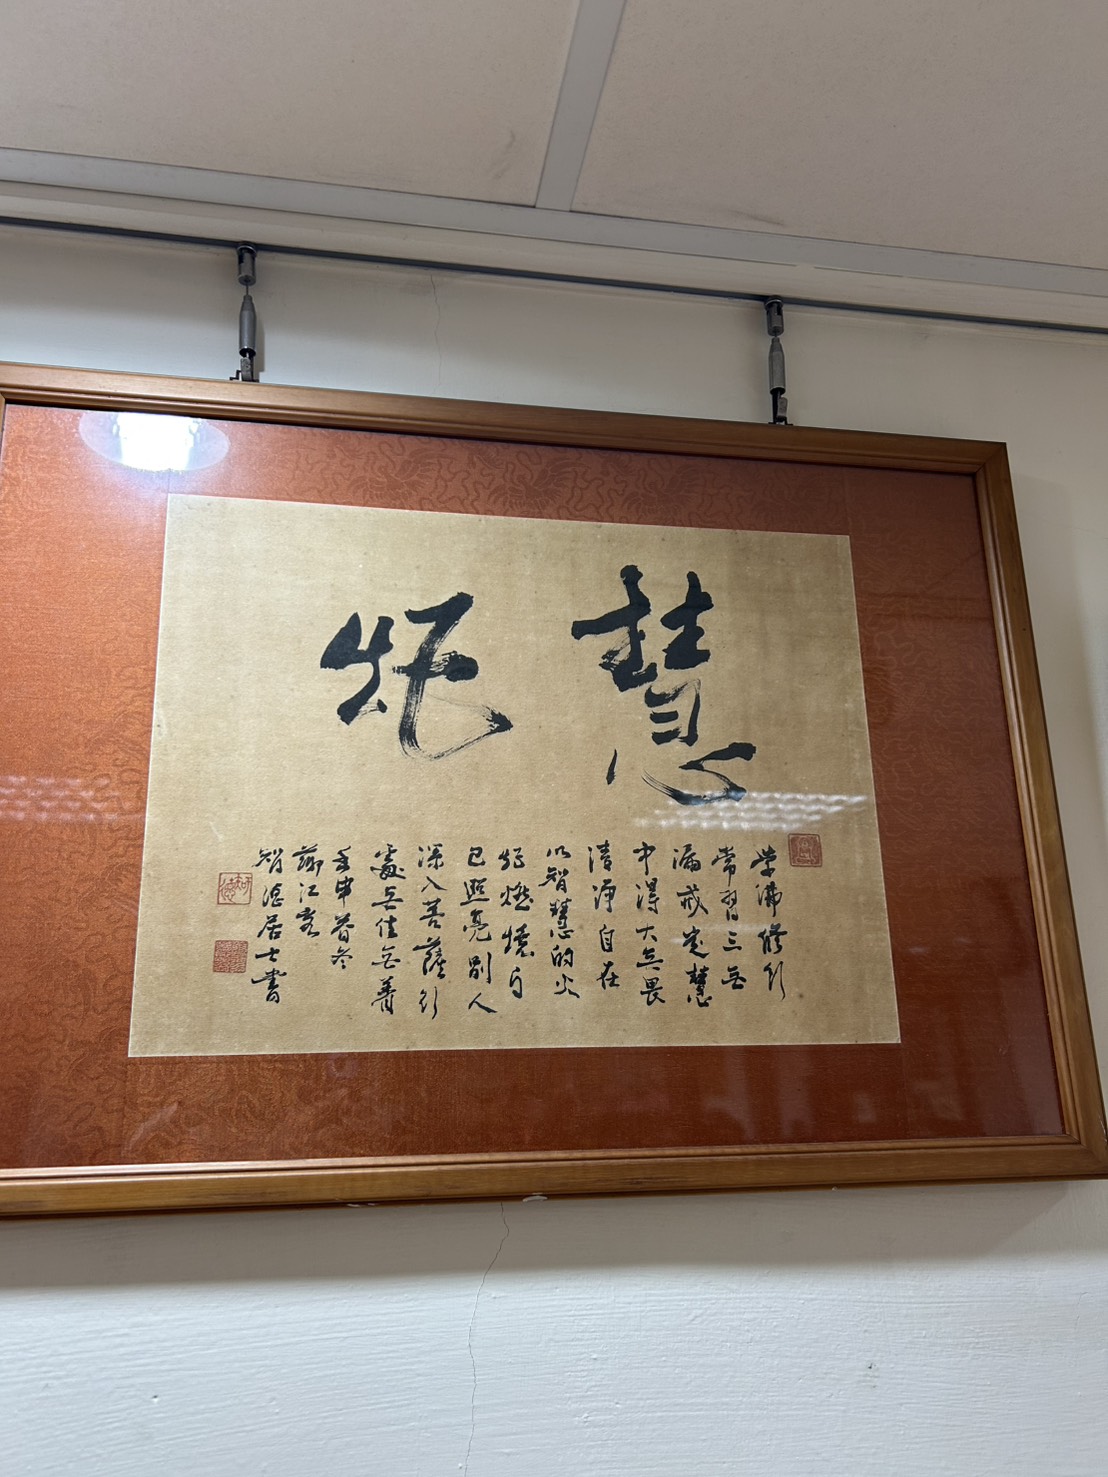 慧炬
學佛修行
常習三無
漏戒定慧
中得大無畏
清淨自在
以智慧的火
炬燃燒自
己照亮別人
深入菩薩行
處無住無著
壬申暮冬
江客
智德居士書